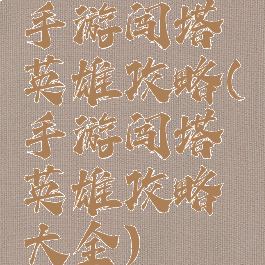 手游闯塔
英雄攻略(
手游闯塔
英雄攻略
大全)